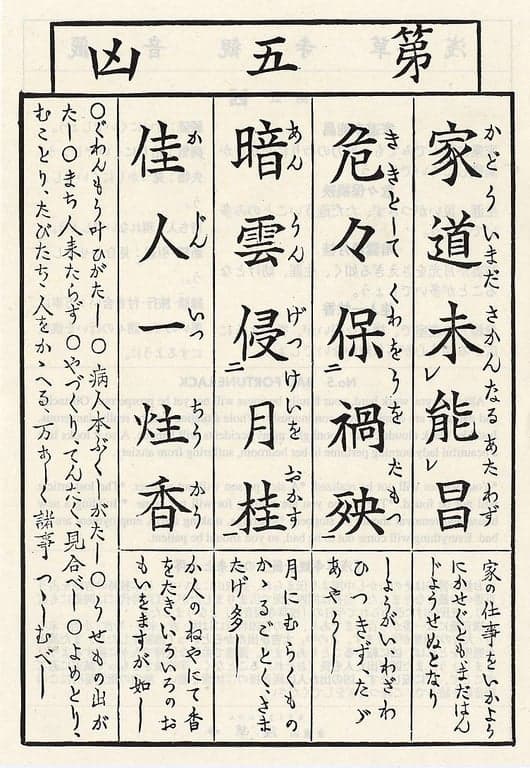 第五凶
かどういまださかんなるあたわず
家道未レ能レ昌
家の仕事をいかよう
にかせぐともまだはん
じようせぬとなり
ききとしてくわをうをたも
危々保ニ禍殃
しようがいわざわ
ひつきず、たゞ
あやうし
あんうんげつけいをおかす
暗雲侵ニ月桂
月にむらくもの
かゝるごとく、さま
たげ多し
かじんいつちうかう
佳人一炷香
か人のねやにて香
をたき、いろいろのお
もいをますが如し
○ぐわんもう叶ひがたし○病人本ぶくしがたし○うせもの出が
たし○まち人来たらず○やづくりてんたく見合べし○よめとり、
むことり、たびたち、人をかゝへる万あし諸事つゝしむべし